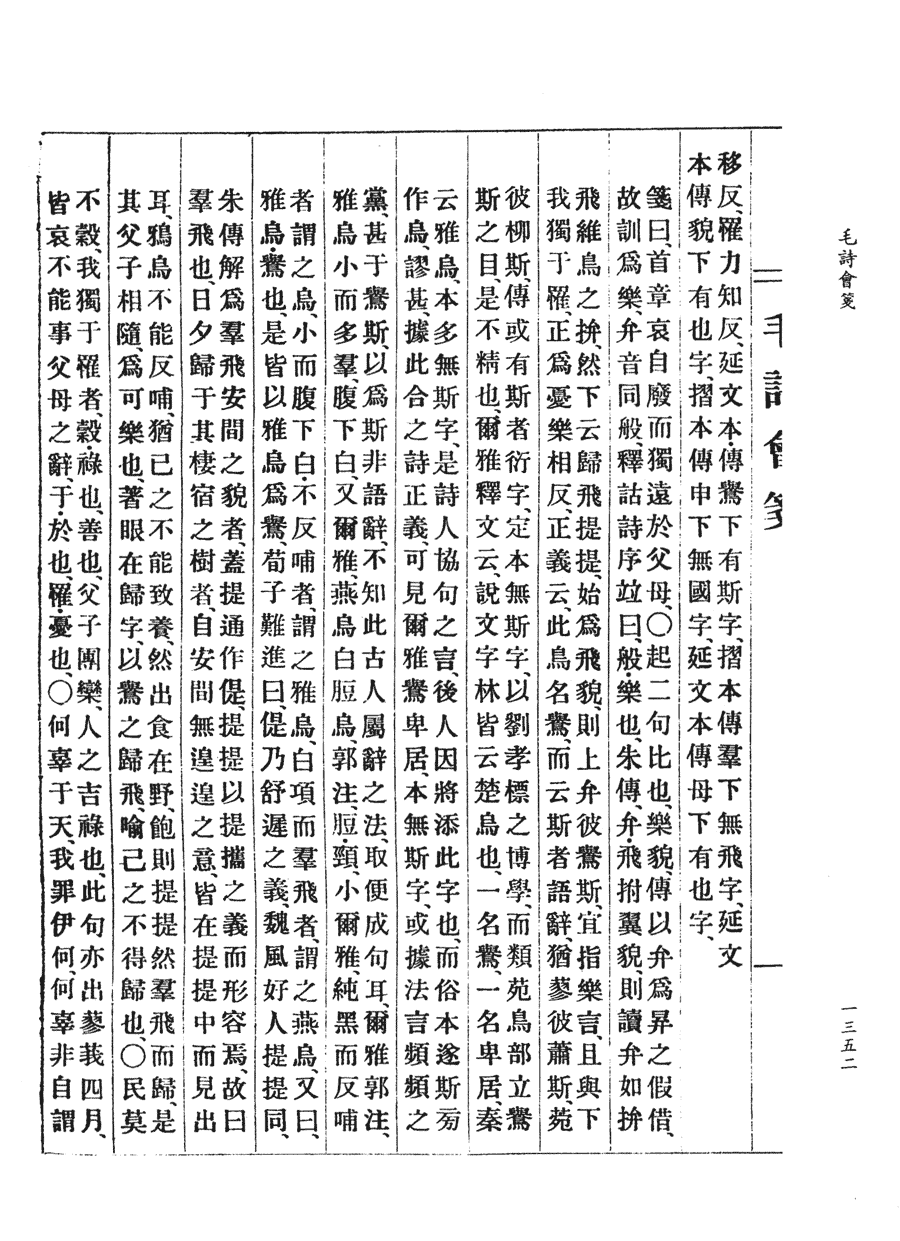 毛詩會箋
一三五二
毛詩會箋
移反、罹力知反、延文本傳鸒下有斯字、摺本傳羣下無飛字、延文
本傳貌下有也字、摺本傳申下無國字、延文本傳母下有也字、
箋曰、首章哀自廢而獨遠於父母、〇起二句比也、樂貌、傳以弁爲昇之假借、
故訓爲樂、弁音同般、釋詁詩序竝曰、般樂也、朱傳、弁飛拊翼貌、則讀弁如拚
飛維鳥之拚、然下云歸飛提提、始爲飛貌、則上弁彼鸒斯、宜指樂言、且與下
我獨于罹、正爲憂樂相反、正義云、此鳥名鸒、而云斯者語辭、猶蓼彼蕭斯、菀
彼柳斯、傳或有斯者衍字、定本無斯字、以劉孝標之博學、而類苑鳥部立鸒
斯之目、是不精也、爾雅釋文云、說文字林皆云楚烏也、一名鸒、一名卑居、秦
云雅烏、本多無斯字、是詩人協句之言、後人因將添此字也、而俗本遂斯旁
作鳥、謬甚、據此合之詩正義、可見爾雅鸒卑居、本無斯字、或據法言頻頻之
黨、甚于鸒斯、以爲斯非語辭、不知此古人屬辭之法、取便成句耳、爾雅郭注、
雅烏小而多羣、腹下白、又爾雅、燕烏白脰烏、郭注、脰頸、小爾雅、純黑而反哺
者謂之烏、小而腹下白、不反哺者、謂之雅烏、白項而羣飛者、謂之燕烏、又曰、
雅烏鸒也、是皆以雅烏爲鸒、荀子難進曰偍、偍乃舒遲之義、魏風好人提提同、
朱傳解爲羣飛安閒之貌者、蓋提通作偍、提提以提攜之義而形容焉、故曰
羣飛也、日夕歸于其棲宿之樹者、自安閒無遑遑之意、皆在提提中而見出
耳、鴉烏不能反哺、猶已之不能致養、然出食在野、飽則提提然羣飛而歸、是
其父子相隨、爲可樂也、著眼在歸字、以鸒之歸飛、喻己之不得歸也、〇民莫
不穀、我獨于罹者、穀祿也、善也、父子團欒、人之吉祿也、此句亦出蓼莪四月、
皆哀不能事父母之辭、于於也、罹憂也、〇何辜于天、我罪伊何、何辜非自謂